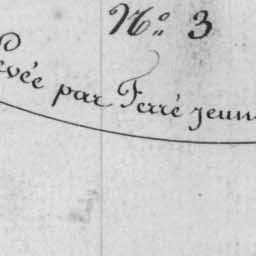 N.o 3
Levée par Ferré jeune